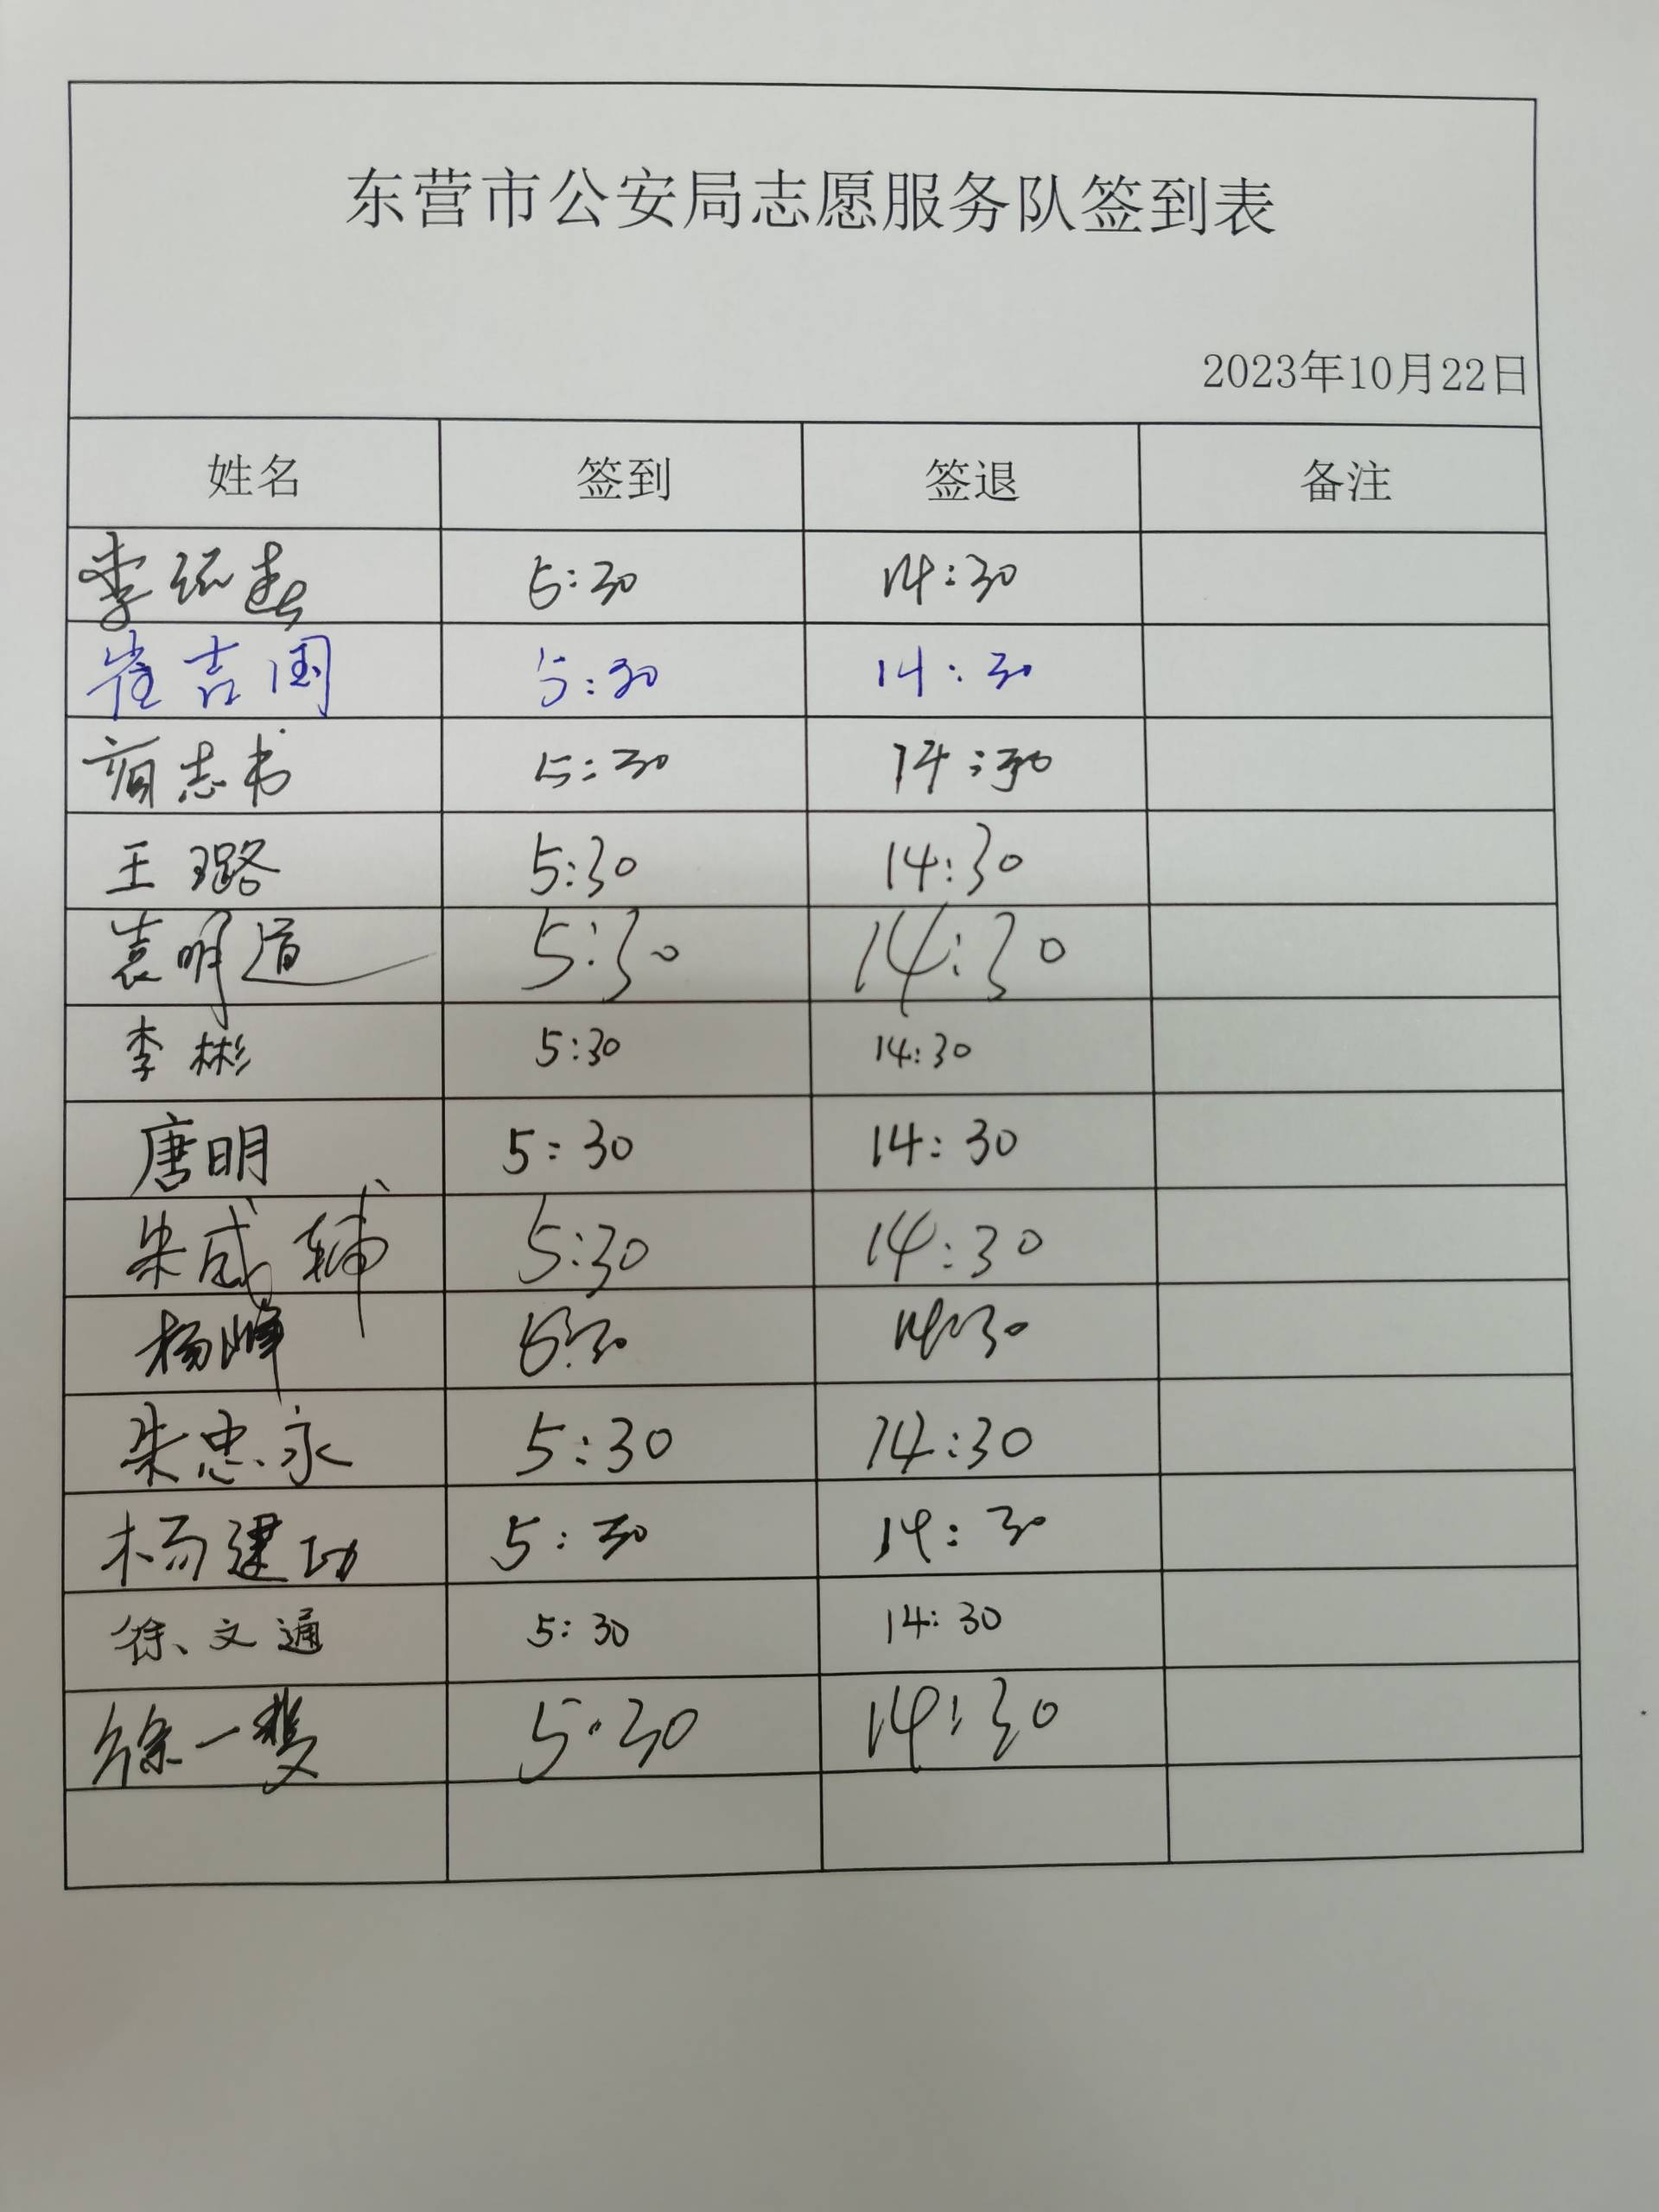 东营市公安局志愿服务队签到表
2023年10月22日
姓名 签到 签退 备注
李 5:30 14:30
崔吉国 5:30 14:30
志书 5:30 14:30
王璐 5:30 14:30
袁明道 5:30 14:30
李彬 5:30 14:30
唐明 5:30 14:30
朱成辅 5:30 14:30
杨峰 5:30 14:30
朱忠永 5:30 14:30
杨建功 5:30 14:30
徐文通 5:30 14:30
徐一 5:30 14:30